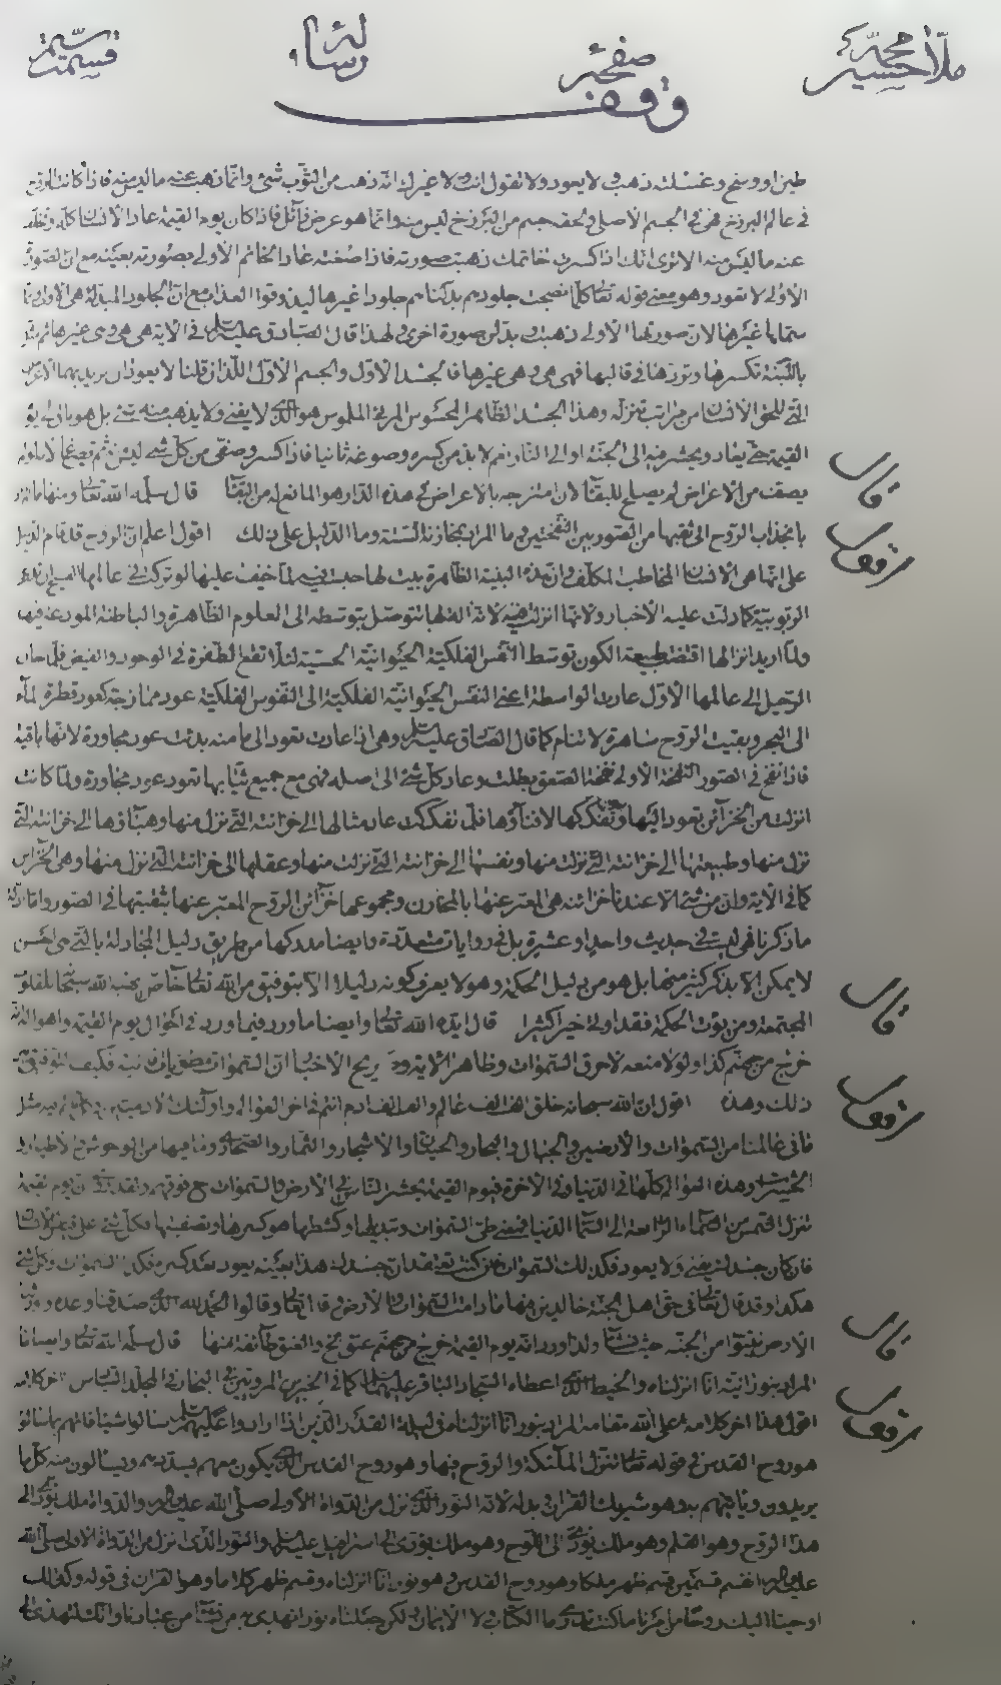 ملا محمد حسين
صفحه
رسالة
قسمت
وقف
طين او وسخ وغسلته ذهب ولا يعود ولا تقول انت ولا غيرك انه ذهب من الثوب شئ وانما ذهب عنه ما ليس منه فاذا كانت الروح
في عالم البرزخ فهى في الجسم الأصلى ولحقه جسم من البرزخ ليس منه وانما هو عرض زائل فاذا كان يوم القيمة عاد الأنسان كله
عنه ما ليس منه الا ترى انك اذا كسرت خاتمك ذهبت صورته فاذا صغته عاد الخاتم الأولى بصورته بعينه مع ان الصورة
الأولى لا تعود وهو معنى قوله تعالى كلما نضجت جلودهم بدلناهم جلودا غيرها ليذوقوا العذاب مع ان الجلود المبدلة هى الأولى
سماها غيرها لان صورتها الأولى ذهبت وبدلت صورة اخرى ولهذا قال الصادق عليه السلم في الآية هى هى وهى غيرها
باللبنة تكسرها وتردها في قالبها فهى هى وهى غيرها فالجسد الأول والجسم الأول اللذان قلنا لا يعودان يريد بهما الأعراض
التى تلحق الانسان من مراتب تنزله وهذا الجسد الظاهر المحسوس المرئى الملموس هو الذى لا يفنى ولا يذهب منه شئ بل هو باق الى يوم
القيمة حتى يعاد ويحشر فيه الى الجنة او الى النار نعم لا بد من كسره وصوغه ثانيا فاذا كسر وصفى من كل شئ ليس منه
يصف من الأعراض لم يصلح للبقاء لان امتزجه بالاعراض في هذه الدار هو المانع له من البقاء قال سلمه الله تعالى ومنها ما المراد
بانجذاب الروح الى ثقبها من الصور بين النفختين وما المراد بمخازنه الستة وما الدليل على ذلك اقول اعلم ان الروح قد قام الدليل
على انها هى الأنسان المخاطب المكلف وان هذه البنية الظاهرة بيت لها حبست فيه لما خيف عليها لو تركت في عالمها
الربوبية كما دلت عليه الأخبار ولانها انزلت فيه لانه الة لها تتوصل بتوسطه الى العلوم الظاهرة والباطنة المودعة فيها
ولما اريد انزالها اقتضت طبيعة الكون توسط النفس الفلكية الحيوانية الحسية لئلا تقع الطفرة في الوجود والفيض فلما حان
الرحيل الى عالمها الأول عادت الواسطة اعنى النفس الحيوانية الفلكية الى النفوس الفلكية عود ممازجة كعود قطرة الماء
الى البحر وبقيت الروح ساهرة لا تنام كما قال الصادق عليه السلم وهى اذا عادت تعود الى ما منه بدئت عود مجاورة لانها باقية
فاذا نفخ في الصور النفخة الأولى نفخة الصعق بطلت وعاد كل شئ الى اصله فهى مع جميع ثيابها تعود عود مجاورة ولما كانت
انزلت من الخزائن تعود اليها وتفككها لا فناؤها فلما تفككت عاد مثالها الى خزانته التى نزل منها وهباؤها الى خزانته التى
نزل منها وطبيعتها الى خزانته التى نزلت منها ونفسها الى خزانته التى نزلت منها وعقلها الى خزانته التى نزل منها وهى الخزائن
كما في الآية وان من شئ الا عندنا خزائنه هى المعبر عنها بالمخازن ومجموعها خزائن الروح المعبر عنها بثقبتها في الصور واما ادلة
ما ذكرنا فهى ليست في حديث واحد او عشرة بل في روايات متعددة وايضا مدركها من طريق دليل المجادلة بالتى هى احسن
لا يمكن الا بذكر كثير منها بل هو من دليل الحكمة وهو لا يعرف كونه دليلا الا بتوفيق من الله تعالى خاص
المجتمعة ومن يؤت الحكمة فقد اوتى خيرا كثيرا قال ايده الله تعالى وايضا ما ورد فيما ورد في احوال يوم القيمة واهواله انه
خرج من جهنم كذا ولولا منعه لاحرق السموات وظاهر الآية وصريح الأخبار ان السموات مطويات فيه فكيف التوفيق بين
ذلك وهذه اقول ان الله سبحانه خلق الف الف عالم والف الف ادم انتم في اخر العوالم واولئك الآدميين
ما في عالمنا من السموات والأرضين والجبال والبحار والحيتان والأشجار والثمار والصحارى وما فيها من الوحوش
وهذه العوالم كلها في الدنيا وفي الآخرة فيوم القيمة يحشر الناس في الأرض والسموات
تنزل الشمس من السماء الرابعة الى السماء الدنيا فمعنى طى السموات وتبديلها وكشطها هو كسرها وتصفيتها فكل شئ على
فان كان جسدك يفنى ولا يعود فكذلك السموات وان كنت تعتقد ان جسدك هذا بعينه يعود بعد كسره فكذلك السموات وكل شئ
هكذا وقد قال تعالى في حق اهل الجنة خالدين فيها ما دامت السموات والأرض وقال تعالى وقالوا الحمد لله الذى صدقنا وعده واورثنا
الأرض نتبوأ من الجنة حيث نشاء ولذا ورد انه يوم القيمة خرج من جهنم عنق قال سلمه الله تعالى وايضا ما
المراد بنورانية انا انزلناه والخيط الذى اعطاه السجاد الباقر عليهما السلم كما في الخبرين المرويين في البحار في المجلد السابع اخر كلامه
اقول هذا اخر كلامه اعلى الله مقامه المراد بنور انا انزلناه في ليلة القدر الذين اذا ارادوا عليهم السلم
هو روح القدس في قوله تعالى تنزل الملئكة والروح فيها وهو روح القدس الذى يكون معهم يسددهم ويسألون منه كل ما
يريدون ويأتيهم به وهو شريك القرآن في بدله لانه النور الذى نزل من الدواة الأولى صلى الله عليه وآله والدواة ملك يؤدى الى
هذا الروح وهو القلم وهو ملك يؤدى الى اللوح وهو ملك يؤدى الى اسرافيل عليه السلم والنور الذى نزل من الدواة الأولى صلى الله
عليه وآله انقسم قسمين قسم ظهر ملكا وهو روح القدس وهو نور انا انزلناه وقسم ظهر كلاما وهو القرآن في قوله وكذلك
اوحينا اليك روحا من امرنا ما كنت تدرى ما الكتاب ولا الايمان ولكن جعلناه نورا نهدى به من نشاء من عبادنا وانك لتهدى الى
قال
اقول
قال
اقول
قال
اقول